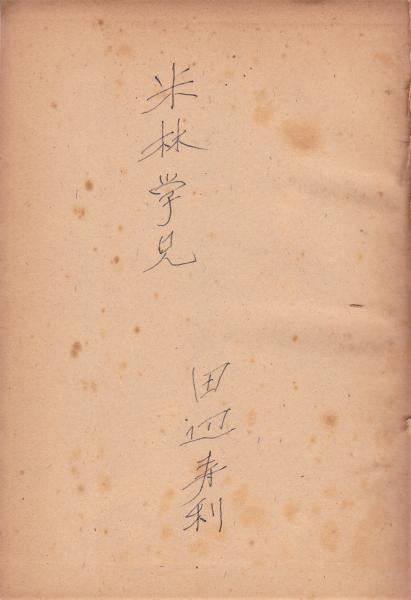 米林学兄
田辺寿利